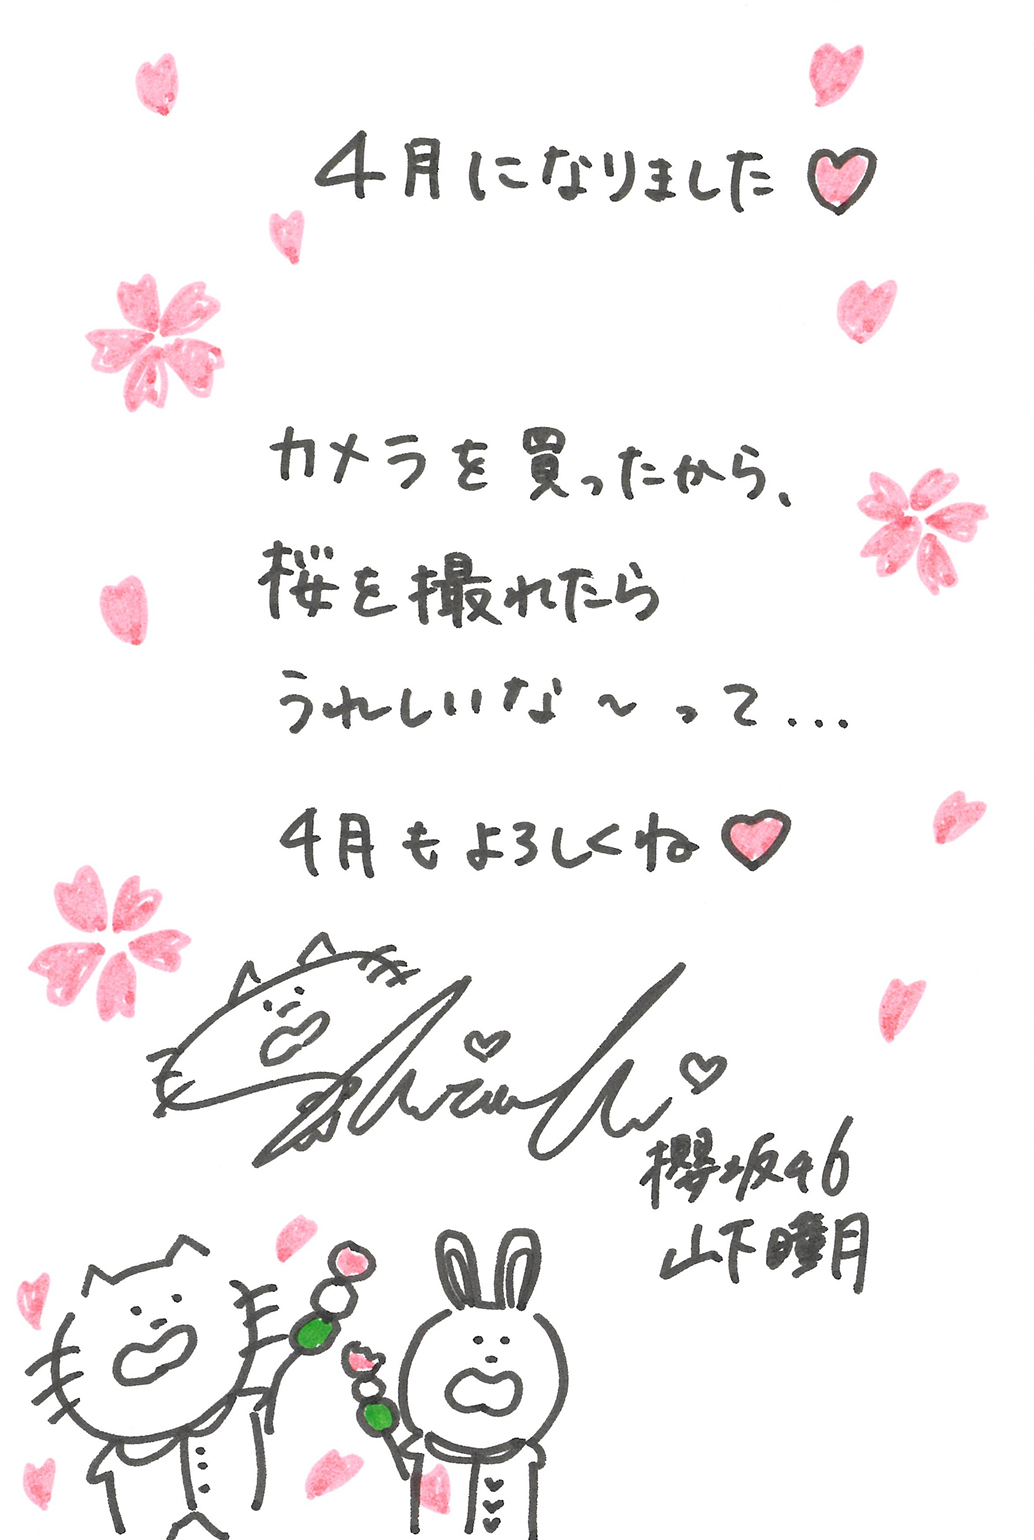 4月になりました♡
カメラを買ったから、
桜を撮れたら
うれしいな〜って...
4月もよろしくね♡
櫻坂46
山下瞳月